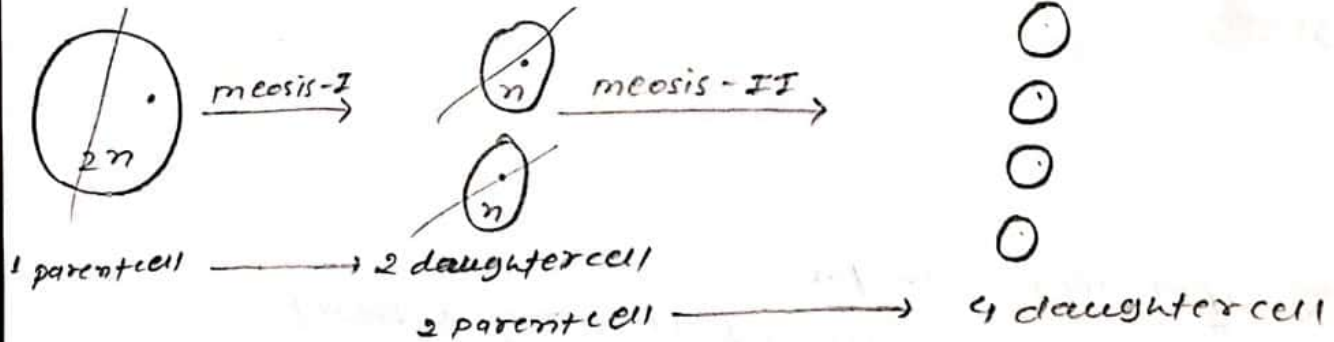 meosis-I
meosis - II
2n
n
n
1 parentcell → 2 daughtercell
2 parentcell → 4 daughtercell